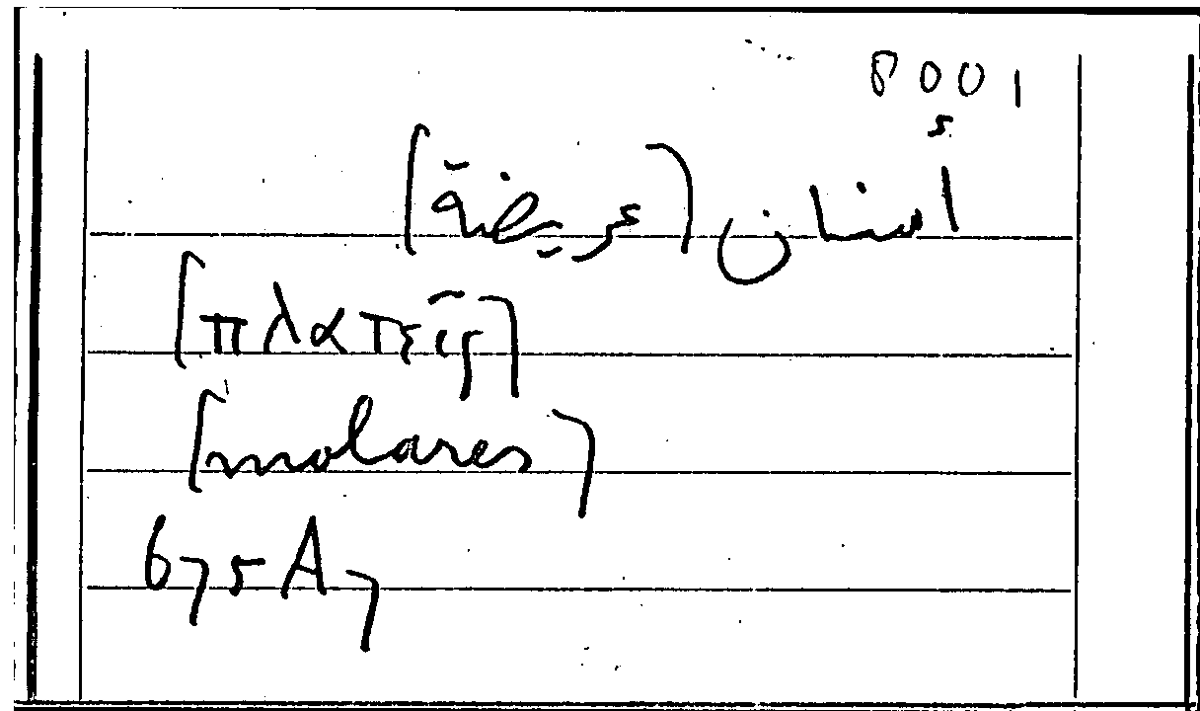 8001
أسنان [عريضة]
[πλατεῖς]
[molares]
675A7